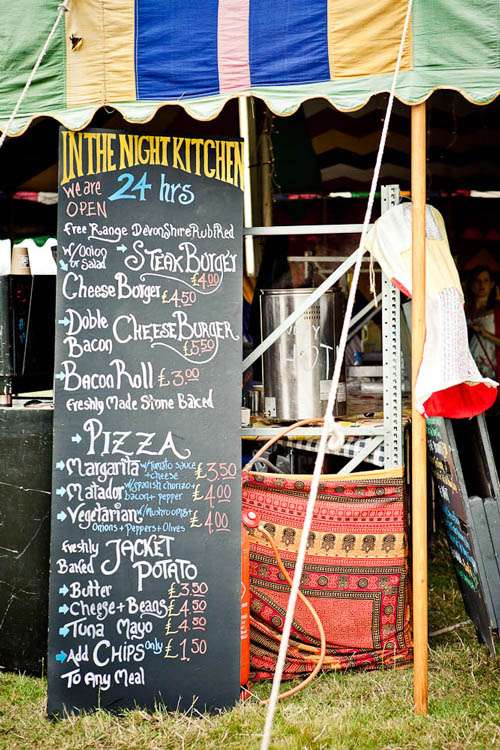 IN THE NIGHT KITCHEN
We are OPEN 24 hrs
free Range DevonShire Rubi Red
W/Onion or Salad STEAK BURGER £4.00
Cheese Burger £4.50
Doble Bacon CHEESE BURGER £5.50
BACON ROLL £3.00
freshly Made Stone Baken
PIZZA
Margarita w/Tomato sauce +cheese £3.50
Matador w/Spanish chorizo+ bacon+pepper £4.00
Vegetarian w/Mushrooms+ Onions+Peppers+Olives £4.00
freshly Baked JACKET POTATO
Butter £3.50
Cheese+Beans £4.50
Tuna Mayo £4.50
Add CHIPS only £1.50
To Any Meal
HOT